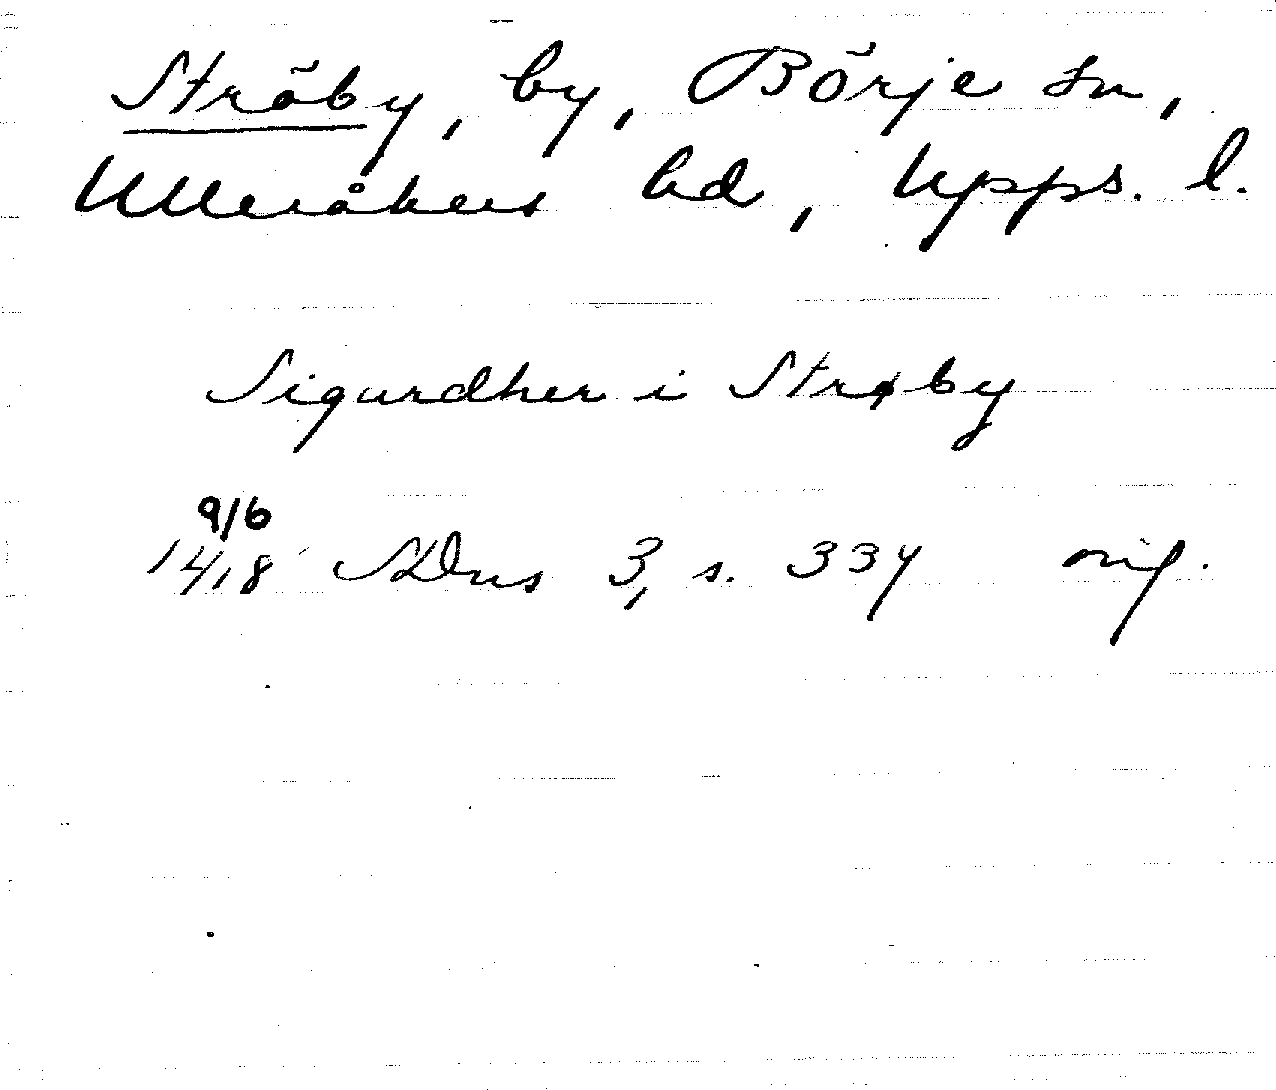 Ströby, by, Börje sn,
Ulleråkers hd, Upps. l.
Sigurdher i Strøby
9/6
1418 SDns 3, s. 337 orig.